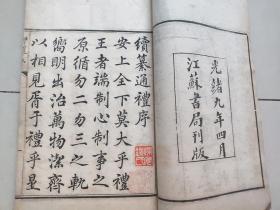 光緒九年四月
江蘇書局刊版
續纂通禮序
安上全下莫大乎禮
王者端制心制事之
原循勿二勿三之軌
嚮明出治萬物潔齊
以相見胥于禮乎星